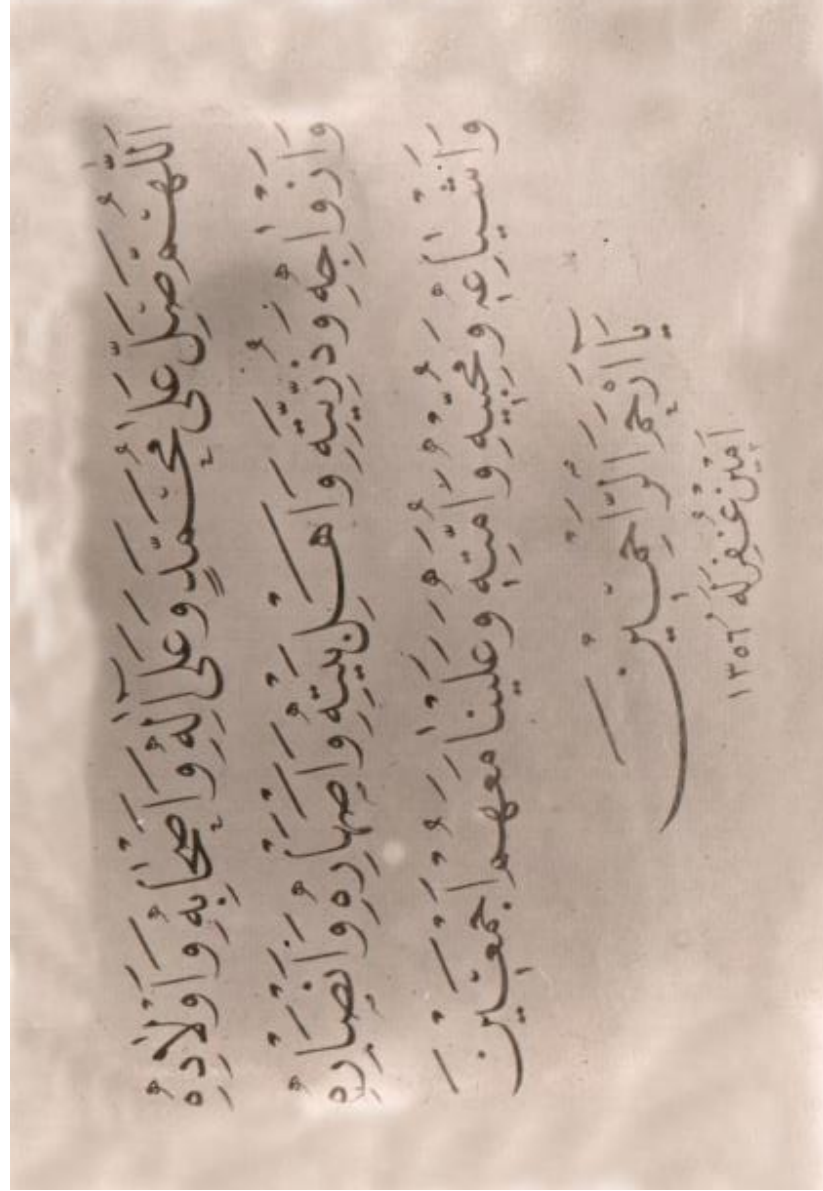 اَللّٰهُمَّ صَلِّ عَلٰى مُحَمَّدٍ وَعَلٰى اٰلِهِ وَاَصْحَابِهِ وَاَوْلَادِهِ
وَاَزْوَاجِهِ وَذُرِّيَّتِهِ وَاَهْلِ بَيْتِهِ وَاَصْهَارِهِ وَاَنْصَارِهِ
وَاَشْيَاعِهِ وَمُحِبِّيهِ وَاُمَّتِهِ وَعَلَيْنَا مَعَهُمْ اَجْمَعِينَ
يَا اَرْحَمَ الرَّاحِمِينَ
اَمِين غُفِرَ لَهُ ١٣٥٦